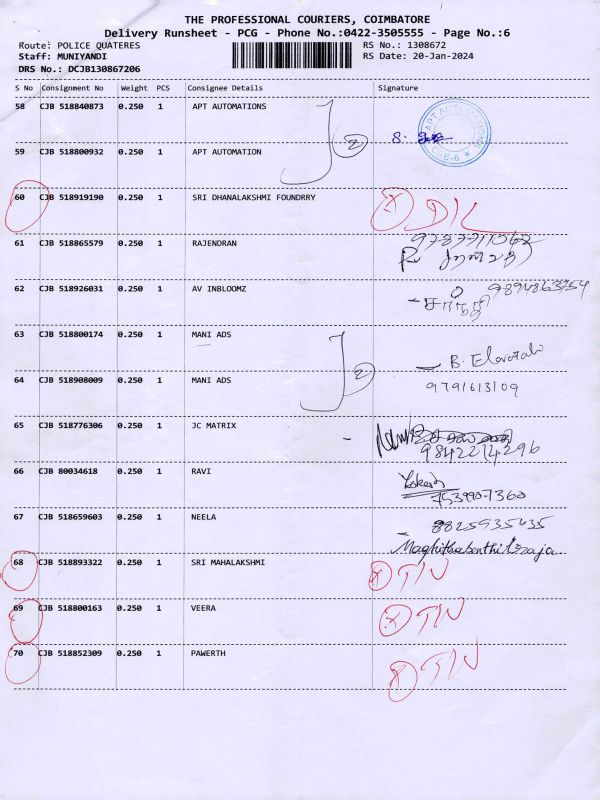 THE PROFESSIONAL COURIERS, COIMBATORE
Delivery Runsheet - PCG - Phone No.:0422-3505555 - Page No.:6
Route: POLICE QUATERES RS No.: 1308672
Staff: MUNIYANDI RS Date: 20-Jan-2024
DRS No.: DCJB130867206
S No Consignment No Weight PCS Consignee Details Signature
58 CJB 518840873 0.250 1 APT AUTOMATIONS
2
59 CJB 518800932 0.250 1 APT AUTOMATION
60 CJB 518919190 0.250 1 SRI DHANALAKSHMI FOUNDRRY D/L
61 CJB 518865579 0.250 1 RAJENDRAN
62 CJB 518926031 0.250 1 AV INBLOOMZ 9894863754
63 CJB 518800174 1 0.250 1 MANI ADS
B. Elavarah
2
64 CJB 518908009 0.250 1 MANI ADS 9791613109
65 CJB 518776306 0.250 1 JC MATRIX
9842214296
66 CJB 80034618 0.250 1 RAVI Lokesh
753990-7360
67 CJB 518659603 0.250 1 NEELA 8825935435
68 CJB 518893322 0.250 1 SRI MAHALAKSHMI
69 CJB 518800163 0.250 1 VEERA
70 CJB 518852309 0.250 1 PAWERTH